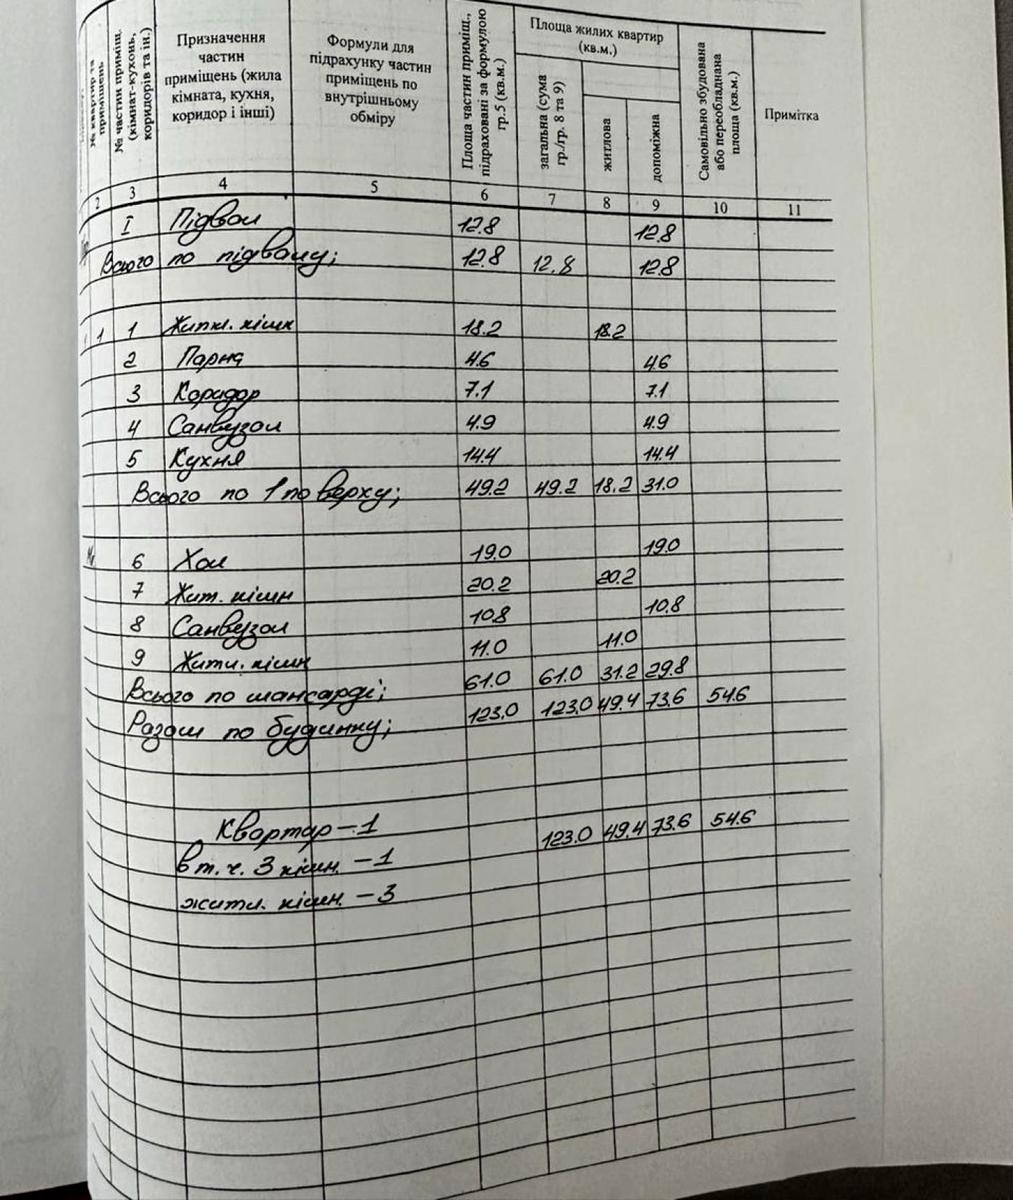 № квартир та приміщень
№ частин приміщ. (кімнат-кухонь, коридорів та ін.)
Призначення частин приміщень (жила кімната, кухня, коридор і інші)
Формули для підрахунку частин приміщень по внутрішньому обміру
Площа частин приміщ., підраховані за формулою гр.5 (кв.м.)
Площа жилих квартир (кв.м.)
загальна (сума гр./гр. 8 та 9)
житлова
допоміжна
Самовільно збудована або переобладнана площа (кв.м.)
Примітка
2 3 4 5 6 7 8 9 10 11
I Підвал 12.8 12.8
Всього по підвалу; 12.8 12.8 12.8
1 1 Житл. кімн 18.2 18.2
2 Парна 4.6 4.6
3 Коридор 7.1 7.1
4 Санвузол 4.9 4.9
5 Кухня 14.4 14.4
Всього по 1 поверху; 49.2 49.2 18.2 31.0
6 Хол 19.0 19.0
7 Жит. кімн 20.2 20.2
8 Санвузол 10.8 10.8
9 Житл. кімн 11.0 11.0
Всього по мансарді; 61.0 61.0 31.2 29.8
Разом по будинку; 123.0 123.0 49.4 73.6 54.6
Квартар – 1 123.0 49.4 73.6 54.6
в т.ч. 3 кімн. – 1
житл. кімн. – 3